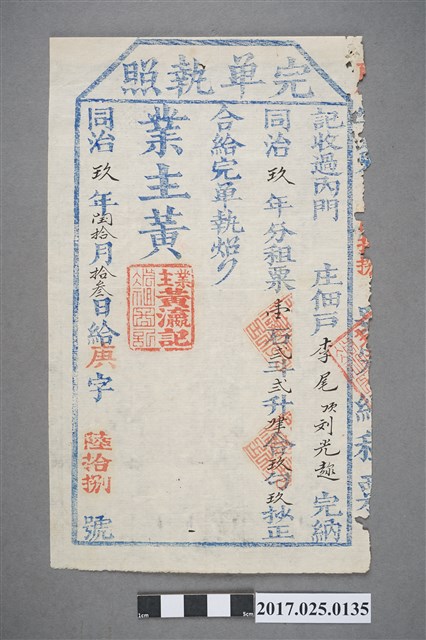 完單執照
記收過內門 庄佃戶李尾頂刘光趂 完納
同治玖年分租粟壹石弍斗弍升肆合玖勺玖抄正
合給完單執炤
業主黃
業主黃瀛記
同治玖年閏拾月拾叁日給庚字陸拾捌號
1cm
5cm
2017.025.0135